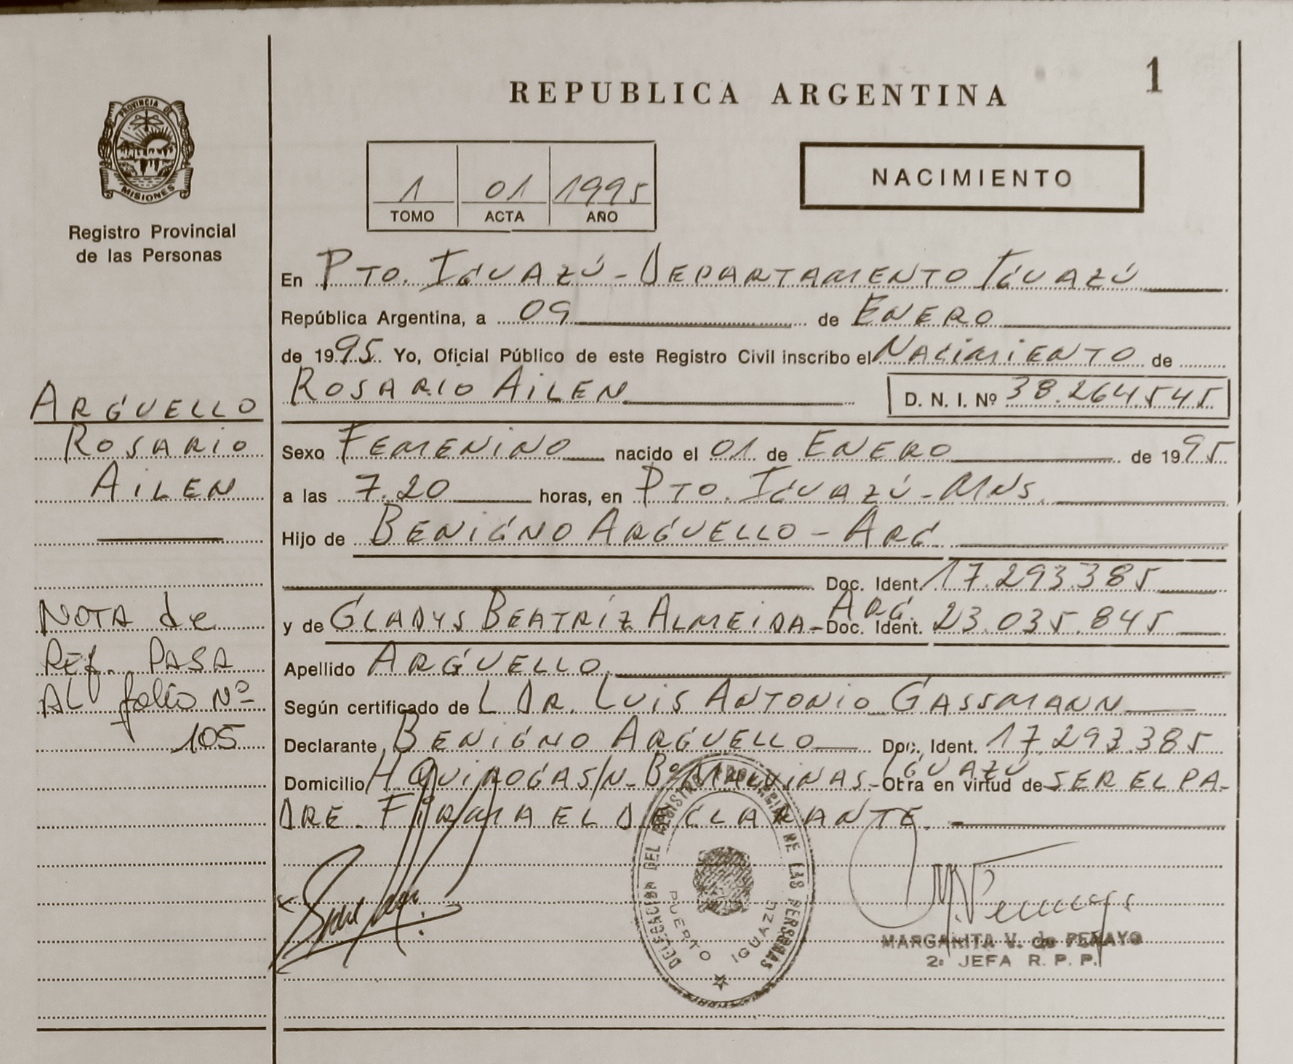 1
REPUBLICA ARGENTINA
PROVINCIA DE
MISIONES
Registro Provincial
de las Personas
1 01 1995
TOMO ACTA AÑO
NACIMIENTO
En PTO. IGUAZÚ - DEPARTAMENTO IGUAZÚ
República Argentina, a 09 de ENERO
de 1995. Yo, Oficial Público de este Registro Civil inscribo el NACIMIENTO de
ROSARIO AILEN D. N. I. Nº 38.264545
Sexo FEMENINO nacido el 01 de ENERO de 1995
a las 7.20 horas, en PTO. IGUAZÚ - MNS.
Hijo de BENIGNO ARGUELLO - ARG
Doc. Ident. 17.293.385
y de GLADYS BEATRIZ ALMEIDA - ARG. Doc. Ident. 23.035.845
Apellido ARGUELLO
Según certificado de L DR. LUIS ANTONIO GASSMANN
Declarante BENIGNO ARGUELLO Doc. Ident. 17.293.385
Domicilio H QUIROGA S/N. Bº MALVINAS - IGUAZÚ Otra en virtud de SER EL PA-
DRE. FIRMA EL DECLARANTE.
ARGUELLO
ROSARIO
AILEN
NOTA de
REf. PASA
AL folio Nº
105
DELEGACION DEL REGISTRO PROVINCIAL DE LAS PERSONAS
PUERTO IGUAZU
MARGARITA V. de PENAYO
2ª JEFA R. P. P.